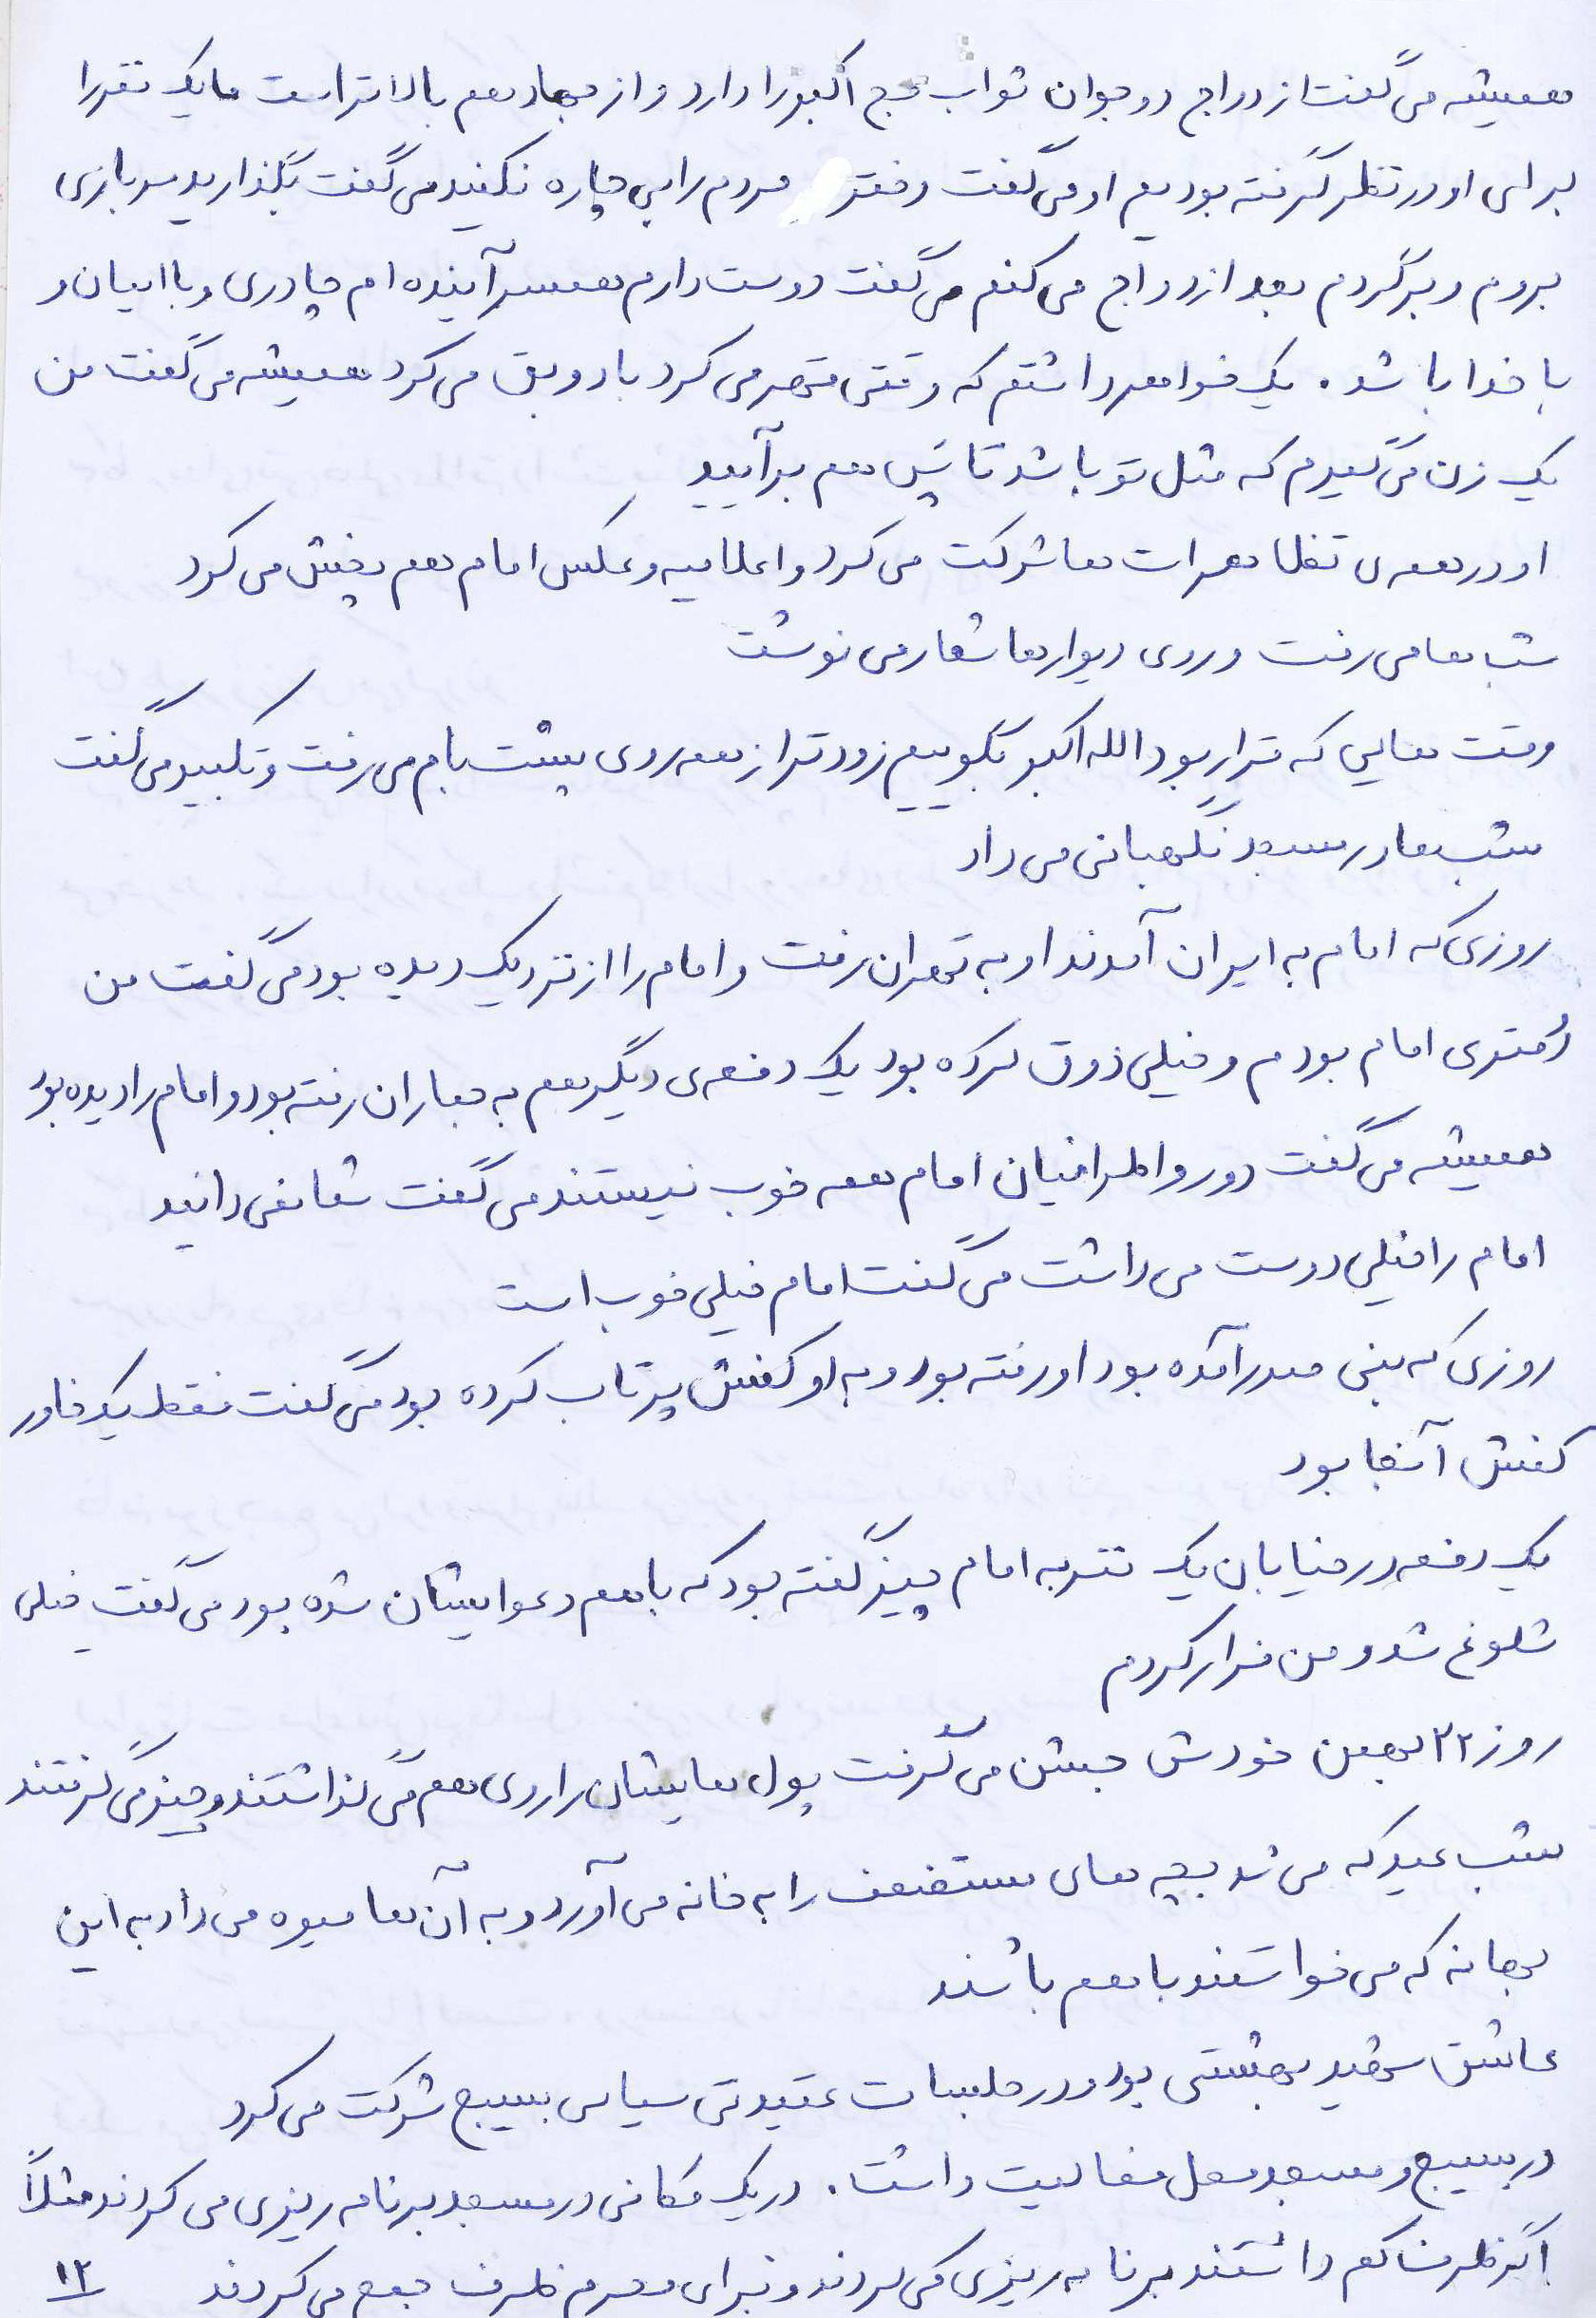 همیشه می گفت ازدواج دو جوان ثواب حج اکبر را دارد و از جهاد هم بالاتر است ما یک نفر را
برای او در نظر گرفته بودیم او می گفت دختر مردم را بی چاره نکنید می گفت بگذارید سربازی
بروم و برگردم بعد ازدواج می کنم می گفت دوست دارم همسر آینده ام چادری و با ایمان و
با خدا باشد. یک خواهر داشتم که وقتی قهر می کرد باد و بق می کرد همیشه می گفت من
یک زن می گیرم که مثل تو باشد تا پس هم برآیید
او در همه ی تظاهرات ها شرکت می کرد و اعلامیه و عکس امام هم پخش می کرد
شب ها می رفت و روی دیوارها شعار می نوشت
وقت هایی که قرار بود الله اکبر بگوییم زودتر از همه روی پشت بام می رفت و تکبیر می گفت
شب ها در مسجد نگهبانی می داد
روزی که امام به ایران آمدند او به تهران رفت و امام را از نزدیک دیده بود می گفت من
دُ متری امام بودم و خیلی ذوق کرده بود یک دفعه ی دیگر هم به جماران رفته بود و امام را دیده بود
همیشه می گفت دور و اطرافیان امام همه خوب نیستند می گفت شما نمی دانید
امام را خیلی دوست می داشت می گفت امام خیلی خوب است
روزی که بنی صدر آمده بود او رفته بود و به او کفش پرتاب کرده بود می گفت فقط یک خاور
کفش آنجا بود
یک دفعه در خیابان یک نفر به امام چیز گفته بود که با هم دعوایشان شده بود می گفت خیلی
شلوغ شد و من فرار کردم
روز ۲۲ بهمن خودش جشن می گرفت پول هایشان را روی هم می گذاشتند و چیز می گرفتند
شب عید که می شد بچه های مستضعف را به خانه می آورد و به آن ها میوه می داد به این
بهانه که می خواستند با هم باشند
عاشق شهید بهشتی بود و در جلسات عقیدتی سیاسی بسیج شرکت می کرد
در بسیج و مسجد محل فعالیت داشت. در یک مکانی در مسجد برنامه ریزی می کردند مثلاً
اگر ظرف کم داشتند برنامه ریزی می کردند و برای محرم ظرف جمع می کردند ۱۲